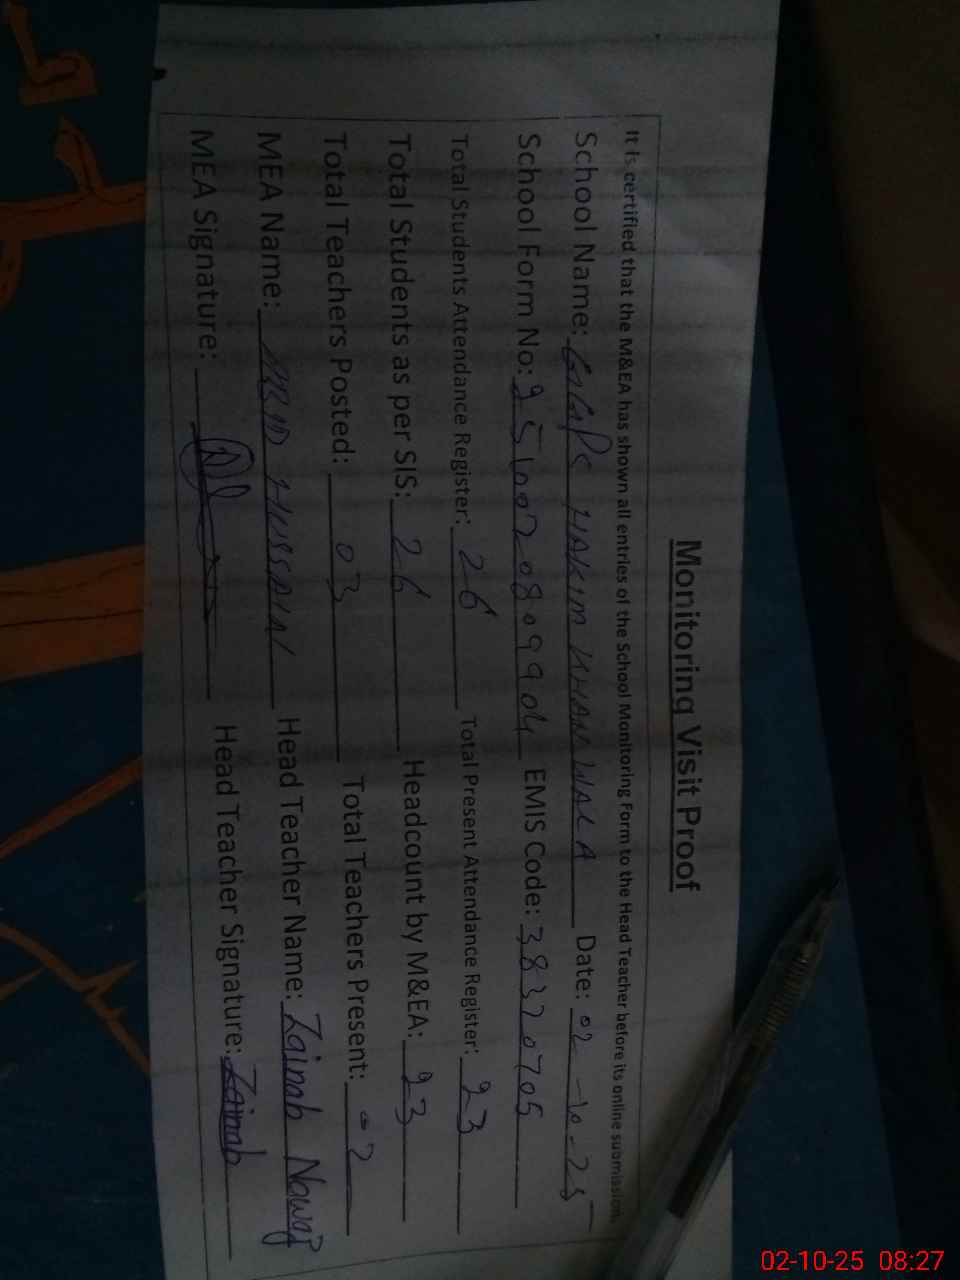 Monitoring Visit Proof
It is certified that the M&EA has shown all entries of the School Monitoring Form to the Head Teacher before its online submission.
School Name: GGPS HAKIM KHAN WALA Date: 02-10-25
School Form No: 2510070809904 EMIS Code: 38320705
Total Students Attendance Register: 26 Total Present Attendance Register: 23
Total Students as per SIS: 26 Headcount by M&EA: 23
Total Teachers Posted: 03 Total Teachers Present: 02
MEA Name: HUSSAIN Head Teacher Name: Zainab Nawaz
MEA Signature: Head Teacher Signature: Zainab
02-10-25 08:27